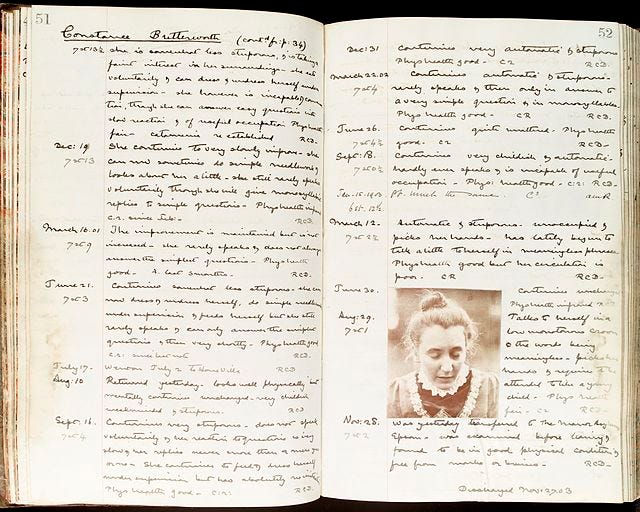 51
Constance Butterworth (contd fr. p. 34)
7 st 13½ she is somewhat less stuporous, & is taking
faint interest in her surroundings - she eats
voluntarily & can dress & undress herself under
supervision - she however is incapable of
tion, though she can answer easy questions in a
slow reaction & of useful occupation Phys health
fair - catamenia re established RCD.
Dec: 19 She continues to very slowly improve - she
7 st 13 can now sometimes do simple needlework &
looks about her a little - she still rarely speaks
voluntarily though she will give monosyllabic
replies to simple questions - Phys health
RCD.
March 10.01 The improvement is maintained but is not
7 st 9 increased - she rarely speaks & does not always
answer the simplest questions - Phys health
good - last 3 months - RCD.
June 10.21 Continues somewhat less stuporous - she can
7 st 3 now dress & undress herself, do simple needlework
under supervision & feeds herself but she still
rarely speaks & can only answer the simplest
questions & then very shortly - Phys health good
RCD.
July 17. Went on July 2 to RCD
Aug. 10 Returned yesterday - looks well physically but
mentally continues unchanged - very childish
& stuporous. RCD
Sept: 16. Continues very stuporous - does not speak
7 st 4 voluntarily & her reaction to questions is very
slow & her replies never more than a mere yes
or no - She continues to feed & dress herself
under supervision but has absolutely no
Phys health good - RCD.
52
Dec: 31 Continues very automatic & stuporous
Phys health good - CR RCD.
March 22.02 Continues automatic & stuporous -
7 st 4 rarely speaks & then only in answer to
a very simple question & in monosyllables.
Phys health good - CR RCD.
June 26. Continues quite unaltered - Phys health
good. CR RCD -
Sept: 18. Continues very childish & automatic -
hardly ever speaks & is incapable of useful
occupation - Phys: health good - RCD -
Pt. much the same.
March 12. Automatic & stuporous - unoccupied &
picks her hands - has lately begun to
talk a little to herself in meaningless phrases
Phys health good but her circulation is
poor - CR RCD -
June 30. Continues unchanged
Phys health
Aug: 29. Talks to herself in a
7 st 1 low monotonous croon
& the words being
meaningless - picks her
hands & requires to be
attended to like a young
child - Phys health
fair - CR RCD -
Nov: 28. Was yesterday transferred to the Manor Asy
7 st 2 Epsom - was examined before leaving &
found to be in good physical condition &
free from marks or bruises - RCD -
Discharged Nov: 27.03